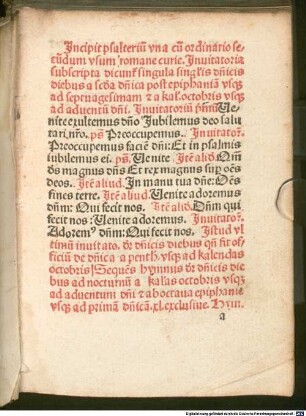 Incipit psalteriũ vna cũ ordinario se-
cũdum vsum romane curie. Inuitatoria
subscripta dicunť singula singľis dñicis
diebus a scďa dñica post epiphaniã vsqꝫ
ad septuagesimam ⁊ a kaľ. octobris vsqꝫ
ad aduentũ dñi. Inuitatoriũ pͥmũ Ue-
nite exultemus dño Jubilemus deo salu
tari.nr̃o. pš Preoccupemus. Inuitatoꝝ.
Preoccupemus faciẽ dñi: Et in psalmis
iubilemus ei. pš. Uenite. Itẽ aliď. Qm̃
ds magnus dñs Et rex magnus suꝑ oẽs
deos. Itẽ aliud. In manu tua dñe: Oẽs
fines terre. Itẽ aliud. Uenite adoremus
dñm: Qui fecit nos. Itẽ aliď. Dñm qui
fecit nos: Uenite adoremus. Inuitatoꝝ.
Adoremꝰ dñm: Qui fecit nos. Istud vl
timũ inuitato. ď dñicis diebus qñ fit of-
ficiũ de dñica a penth. vsqꝫ ad kalendas
octobris Sequẽs hymnus ď dñicis die
bus ad nocturnũ a kaľas octobris vsqꝫ
ad aduentum dñi ⁊ ab octaua epiphanie
vsqꝫ ad primã dñicã .xl. exclusiue. Hym.
a